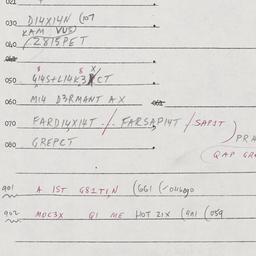 021
030 DI4XI4N (107
KAM VUS)
040 /2815PET
050 G,I4S+LI4K,3 X CT
060 MI4 D3RMANT AX
070 FARDI4XI4T /. FARSAPI4T / SAPIT
080 GREPCT
PRA
QAP GRA
901 A IST G8ITI,N (661 (-046090
902 MDC3X QI ME HOT ZIX (901 (059